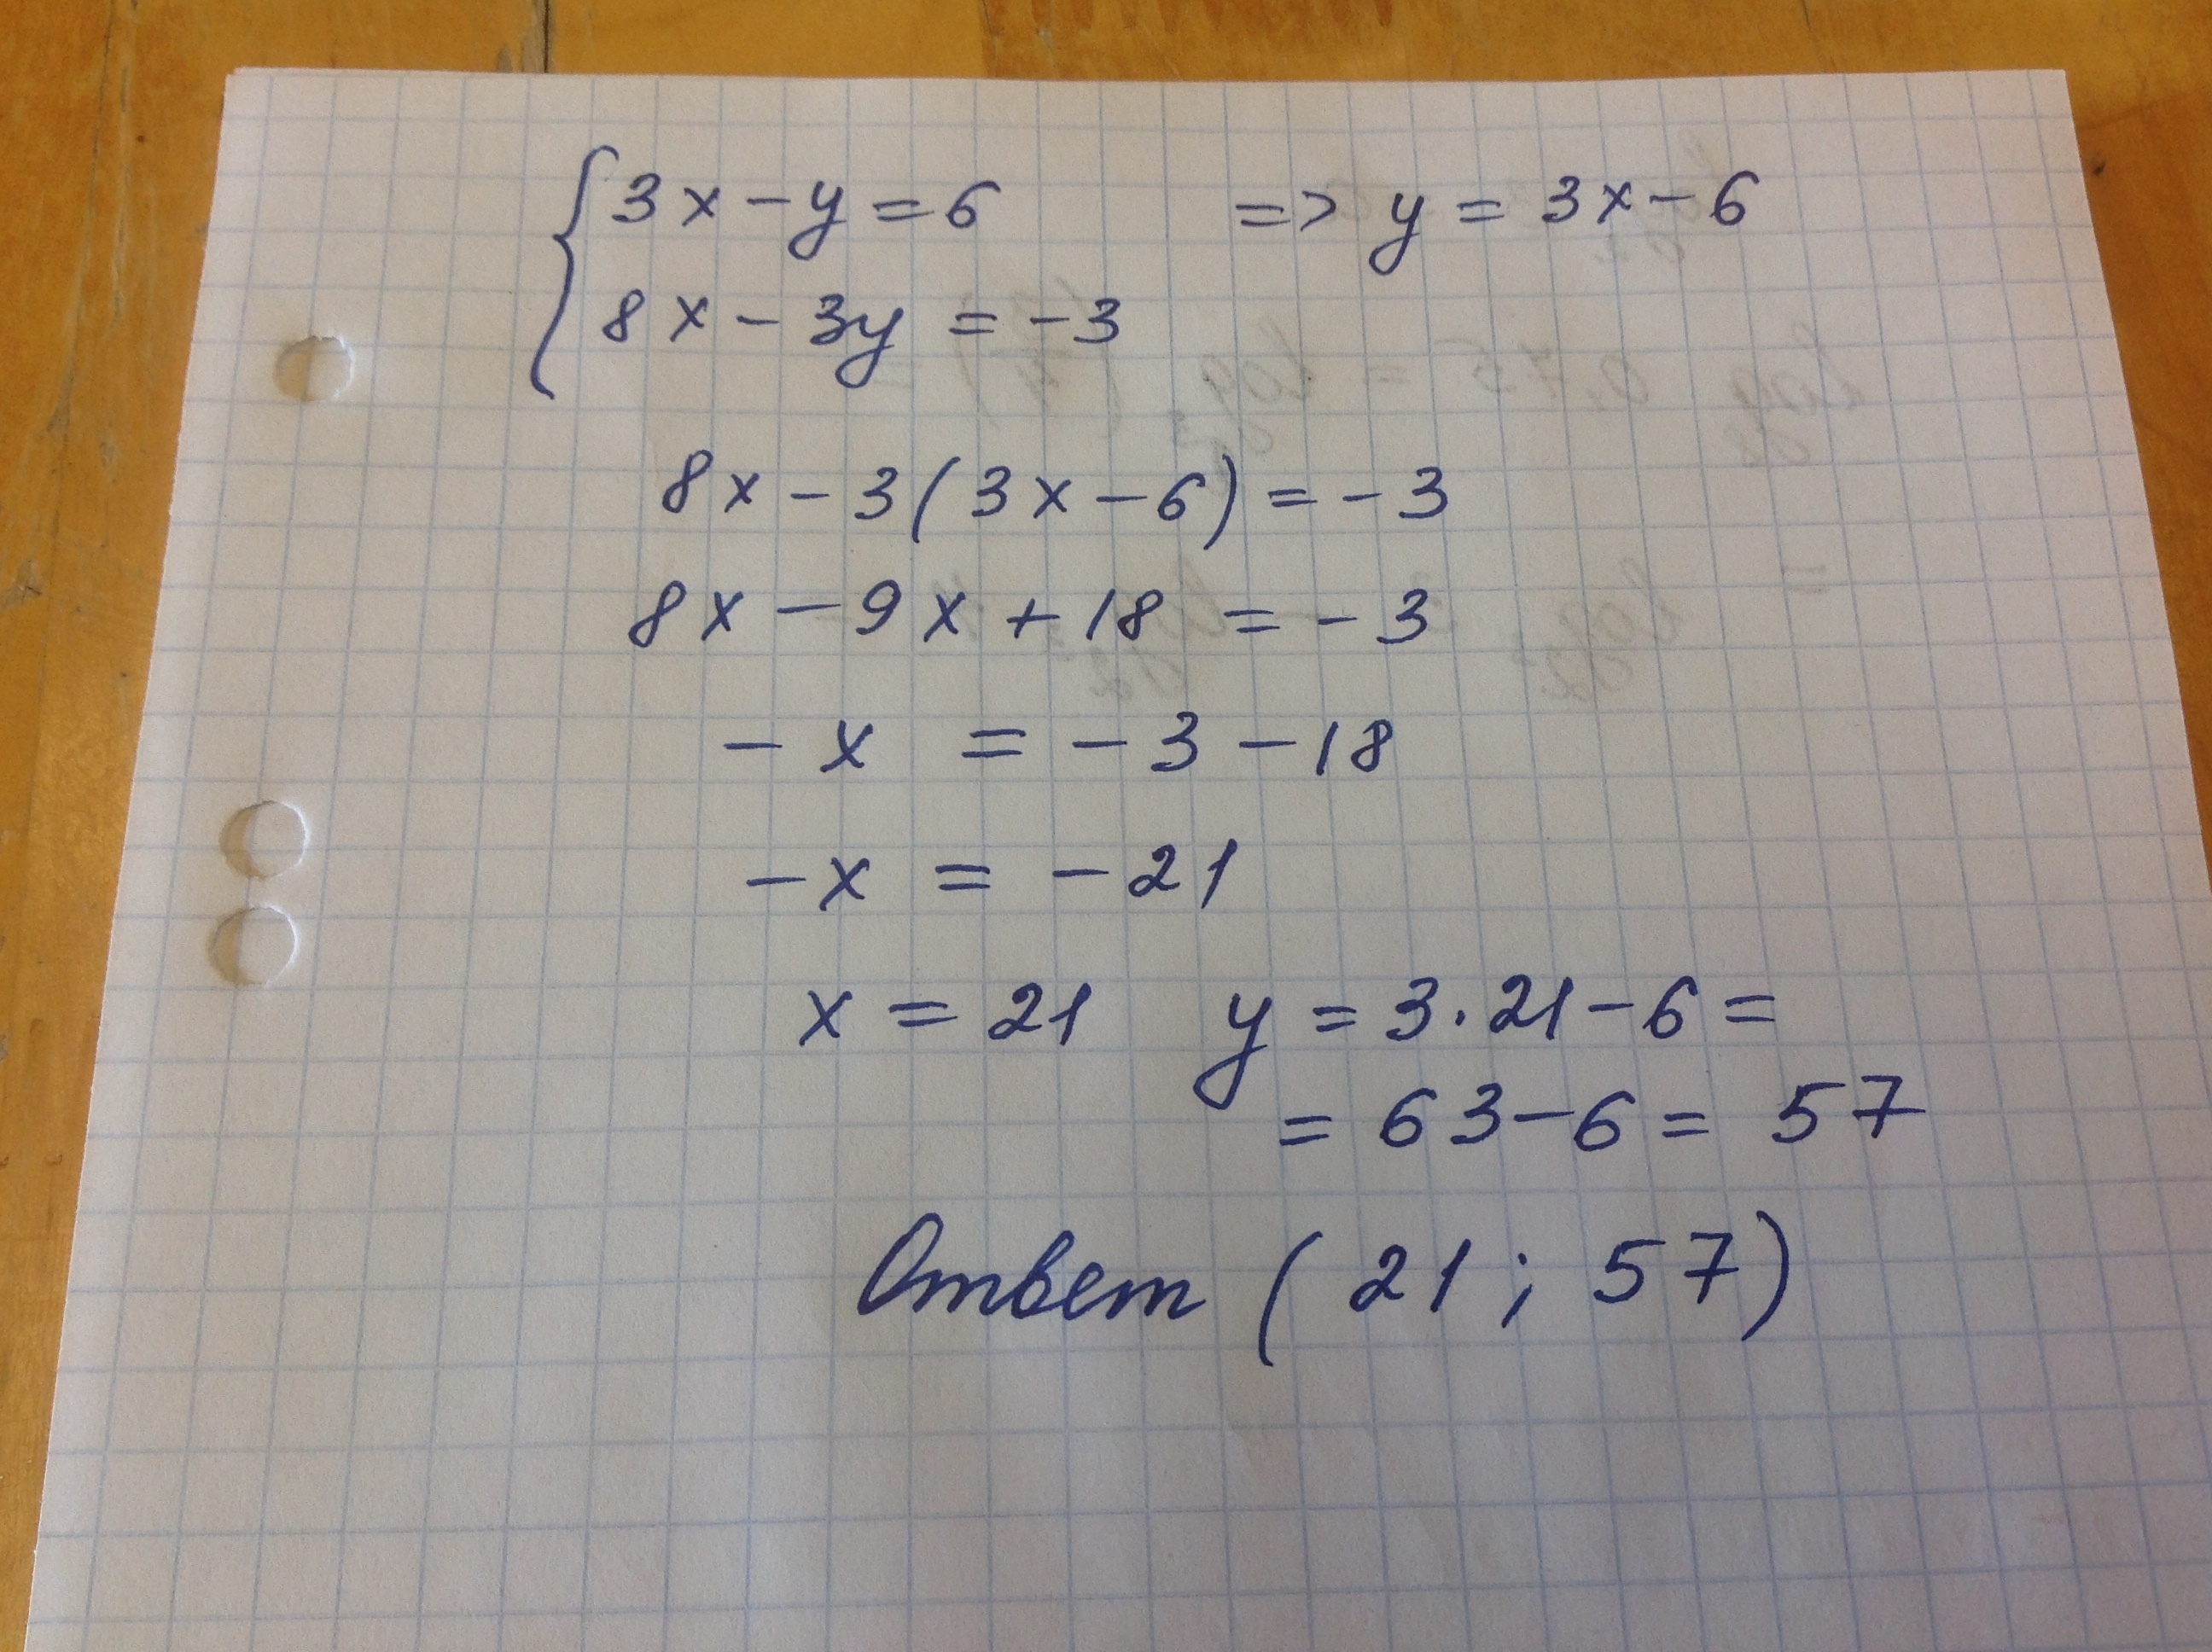 { 3x - y = 6 => y = 3x - 6
8x - 3y = -3
8x - 3(3x - 6) = -3
8x - 9x + 18 = -3
-x = -3 - 18
-x = -21
x = 21 y = 3·21 - 6 =
= 63 - 6 = 57
Ответ (21; 57)